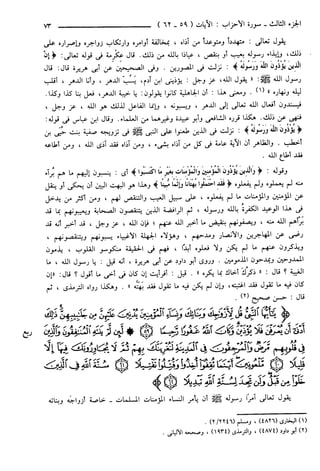 الجزء الثالث - سورة الأحزاب : الآيات ( ٥٩ - ٦٢ ) ٧٣
يقول تعالى : متهددًا ومتوعدًا من آذاه ، بمخالفة أوامره وارتكاب زواجره وإصراره على
ذلك، وإيذاء رسوله بعيب أو بنقص ، عياذا بالله من ذلك. قال عكرمة في قوله تعالى: ﴿ إِنَّ
الَّذِينَ يُؤْذُونَ اللَّهَ وَرَسُولَهُ ﴾ : نزلت في المصورين . وفي الصحيحين عن أبي هريرة قال : قال
رسول الله ﷺ : « يقول الله، عز وجل : يؤذيني ابن آدم، يَسُبّ الدهر ، وأنا الدهر ، أقلب
ليله ونهاره » (١) . ومعنى هذا : أن الجاهلية كانوا يقولون: يا خيبة الدهر، فعل بنا كذا وكذا.
فيسندون أفعال الله تعالى إلى الدهر ، ويسبونه ، وإنما الفاعل لذلك هو الله ، عز وجل ،
فنهى عن ذلك. هكذا قرره الشافعي وأبو عبيدة وغيرهما من العلماء. وقال ابن عباس في قوله:
﴿ يُؤْذُونَ اللَّهَ وَرَسُولَهُ ﴾ : نزلت في الذين طعنوا على النبي ﷺ في تزويجه صفية بنت حُيَي بن
أخطب . والظاهر أن الآية عامة في كل من آذاه بشيء ، ومن آذاه فقد آذى الله ، ومن أطاعه
فقد أطاع الله .
وقوله : ﴿ وَالَّذِينَ يُؤْذُونَ الْمُؤْمِنِينَ وَالْمُؤْمِنَاتِ بِغَيْرِ مَا اكْتَسَبُوا ﴾ أي : ينسبون إليهم ما هم بُرآء
منه لم يعملوه ولم يفعلوه ﴿ فَقَدِ احْتَمَلُوا بُهْتَانًا وَإِثْمًا مُّبِينًا ﴾ وهذا هو البهت البين أن يحكى أو ينقل
عن المؤمنين والمؤمنات ما لم يفعلوه ، على سبيل العيب والتنقص لهم ، ومن أكثر من يدخل
في هذا الوعيد الكفرةُ بالله ورسوله ، ثم الرافضة الذين ينتقصون الصحابة ويعيبونهم بما قد
بَرَّأهم الله منه ، ويصفونهم بنقيض ما أخبر الله عنهم ؛ فإن الله ، عز وجل ، قد أخبر أنه قد
رضي عن المهاجرين والأنصار ومدحهم ، وهؤلاء الجهلة الأغبياء يسبونهم ويتنقصونهم ،
ويذكرون عنهم ما لم يكن ولا فعلوه أبدًا ، فهم في الحقيقة منكوسو القلوب ، يذمون
الممدوحين ويمدحون المذمومين . وروى أبو داود عن أبي هريرة ، أنه قيل : يا رسول الله ، ما
الغيبة ؟ قال : « ذكرُكَ أخاك بما يكره » . قيل : أفرأيت إن كان في أخي ما أقول ؟ قال : «إن
كان فيه ما تقول فقد اغتبته، وإن لم يكن فيه ما تقول فقد بَهَتّه » . وهكذا رواه الترمذي ، ثم
قال : حسن صحيح (٢) .
﴿ يَٰٓأَيُّهَا ٱلنَّبِىُّ قُل لِّأَزْوَٰجِكَ وَبَنَاتِكَ وَنِسَآءِ ٱلْمُؤْمِنِينَ يُدْنِينَ عَلَيْهِنَّ مِن جَلَٰبِيبِهِنَّ ذَٰلِكَ أَدْنَىٰٓ أَن
يُعْرَفْنَ فَلَا يُؤْذَيْنَ وَكَانَ ٱللَّهُ غَفُورًا رَّحِيمًا ۝ لَّئِن لَّمْ يَنتَهِ ٱلْمُنَٰفِقُونَ وَٱلَّذِينَ فِى قُلُوبِهِم
مَّرَضٌ وَٱلْمُرْجِفُونَ فِى ٱلْمَدِينَةِ لَنُغْرِيَنَّكَ بِهِمْ ثُمَّ لَا يُجَاوِرُونَكَ فِيهَآ إِلَّا
قَلِيلًا ۝ مَّلْعُونِينَ أَيْنَمَا ثُقِفُوٓا۟ أُخِذُوا۟ وَقُتِّلُوا۟ تَقْتِيلًا ۝ سُنَّةَ ٱللَّهِ فِى ٱلَّذِينَ
خَلَوْا۟ مِن قَبْلُ وَلَن تَجِدَ لِسُنَّةِ ٱللَّهِ تَبْدِيلًا ۝ ﴾
ربع
يقول تعالى آمرًا رسوله ﷺ أن يأمر النساء المؤمنات المسلمات ـ خاصة أزواجَه وبناته
(١) البخاري (٤٨٢٦) ، ومسلم (٢/٢٢٤٦) .
(٢) أبو داود (٤٨٧٤) ، والترمذي (١٩٣٤) ، وصححه الألباني .